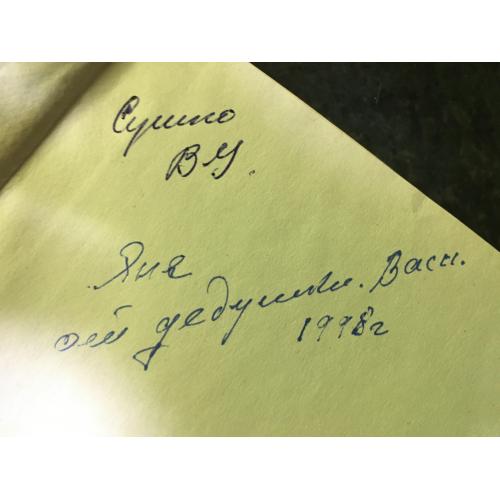 Сушко
ВУ.
Яне
от дедушки. Васи.
1998г